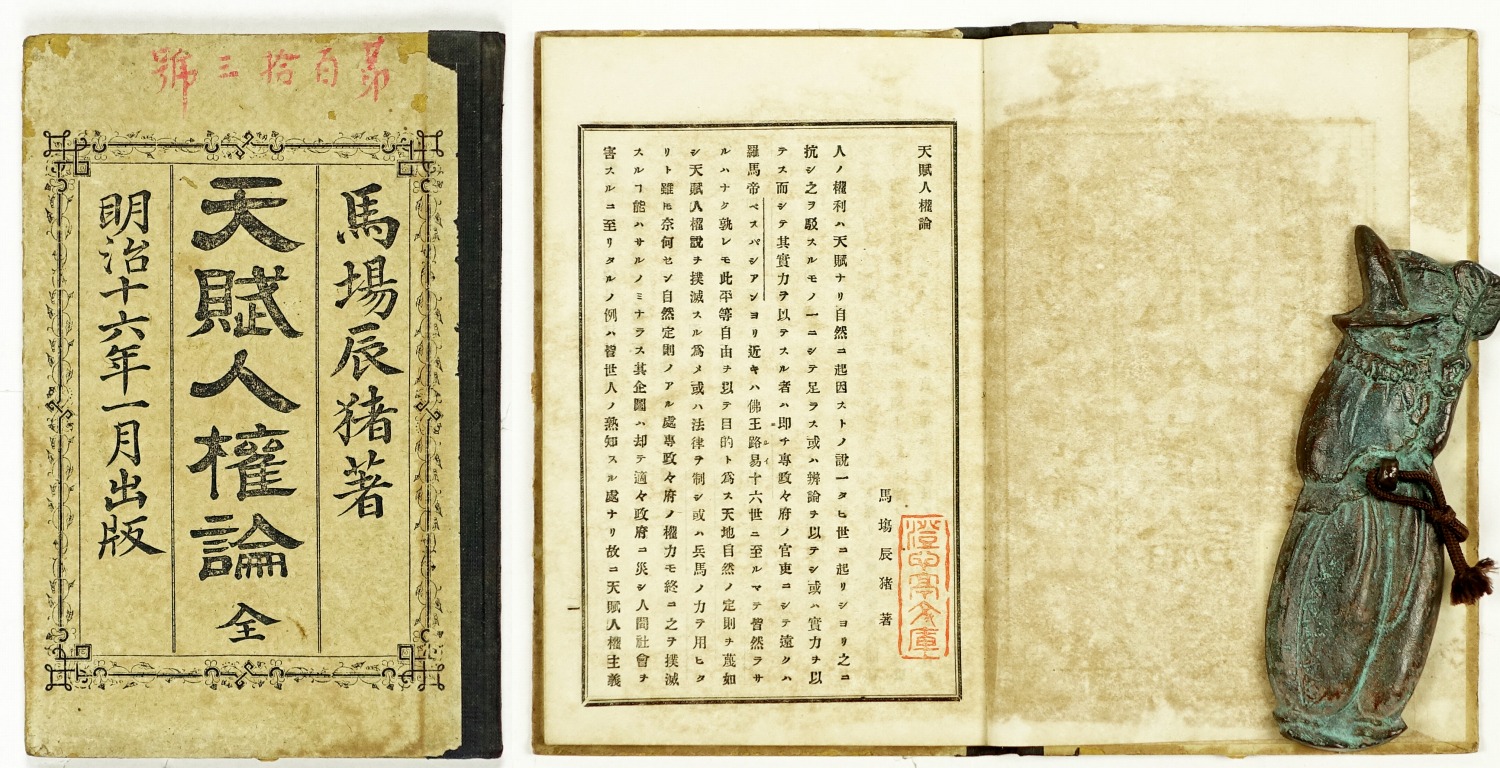 第百拾三號
馬場辰猪著
天賦人權論 全
明治十六年一月出版
天賦人權論
馬塲辰猪著
人ノ權利ハ天賦ナリ自然ニ起因ストノ說一タヒ世ニ起リシヨリ之ニ
抗シ之ヲ駁スルモノ一ニシテ足ラス或ハ辨論ヲ以テシ或ハ實力ヲ以
テス而シテ其實力ヲ以テスル者ハ卽チ專政々府ノ官吏ニシテ遠クハ
羅馬帝ベスパシアンヨリ近キハ佛王路易十六世ニ至ルマテ皆然ラサ
ルハナク孰レモ此平等自由ヲ以テ目的ト爲ス天地自然ノ定則ヲ蔑如
シ天賦人權說ヲ撲滅スル爲メ或ハ法律ヲ制シ或ハ兵馬ノ力ヲ用ヒタ
リト雖𪜈奈何セン自然定則ノアル處專政々府ノ權力モ終ニ之ヲ撲滅
スルヿ能ハサルノミナラス其企圖ハ却テ適々政府ニ災シ人間社會ヲ
害スルニ至リタルノ例ハ皆世人ノ熟知スル處ナリ故ニ天賦人權主義
一
文庫